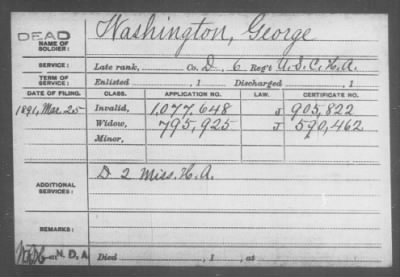 DEAD
Washington, George
NAME OF
SOLDIER:
SERVICE: Late rank, Co. D, 6 Reg't U.S.C.H.A.
TERM OF
SERVICE: Enlisted , 1 Discharged , 1
DATE OF FILING. CLASS. APPLICATION NO. LAW. CERTIFICATE NO.
1891, Mar. 25 Invalid, 1,077,648 J 905,822
Widow, 795,925 J 590,462
Minor,
D 2 Miss. H. A.
ADDITIONAL
SERVICES:
REMARKS:
N. D. A
Died , 1 , at